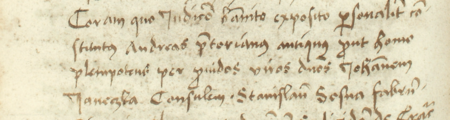 Coram quo Judicio bannito exposito personaliter con
stitutus Andreas Pretorianus antiquus prout homo
plenipotens per providos viros dnos Johannem
Janeczka Consulem Stanislau Sosna fabrum